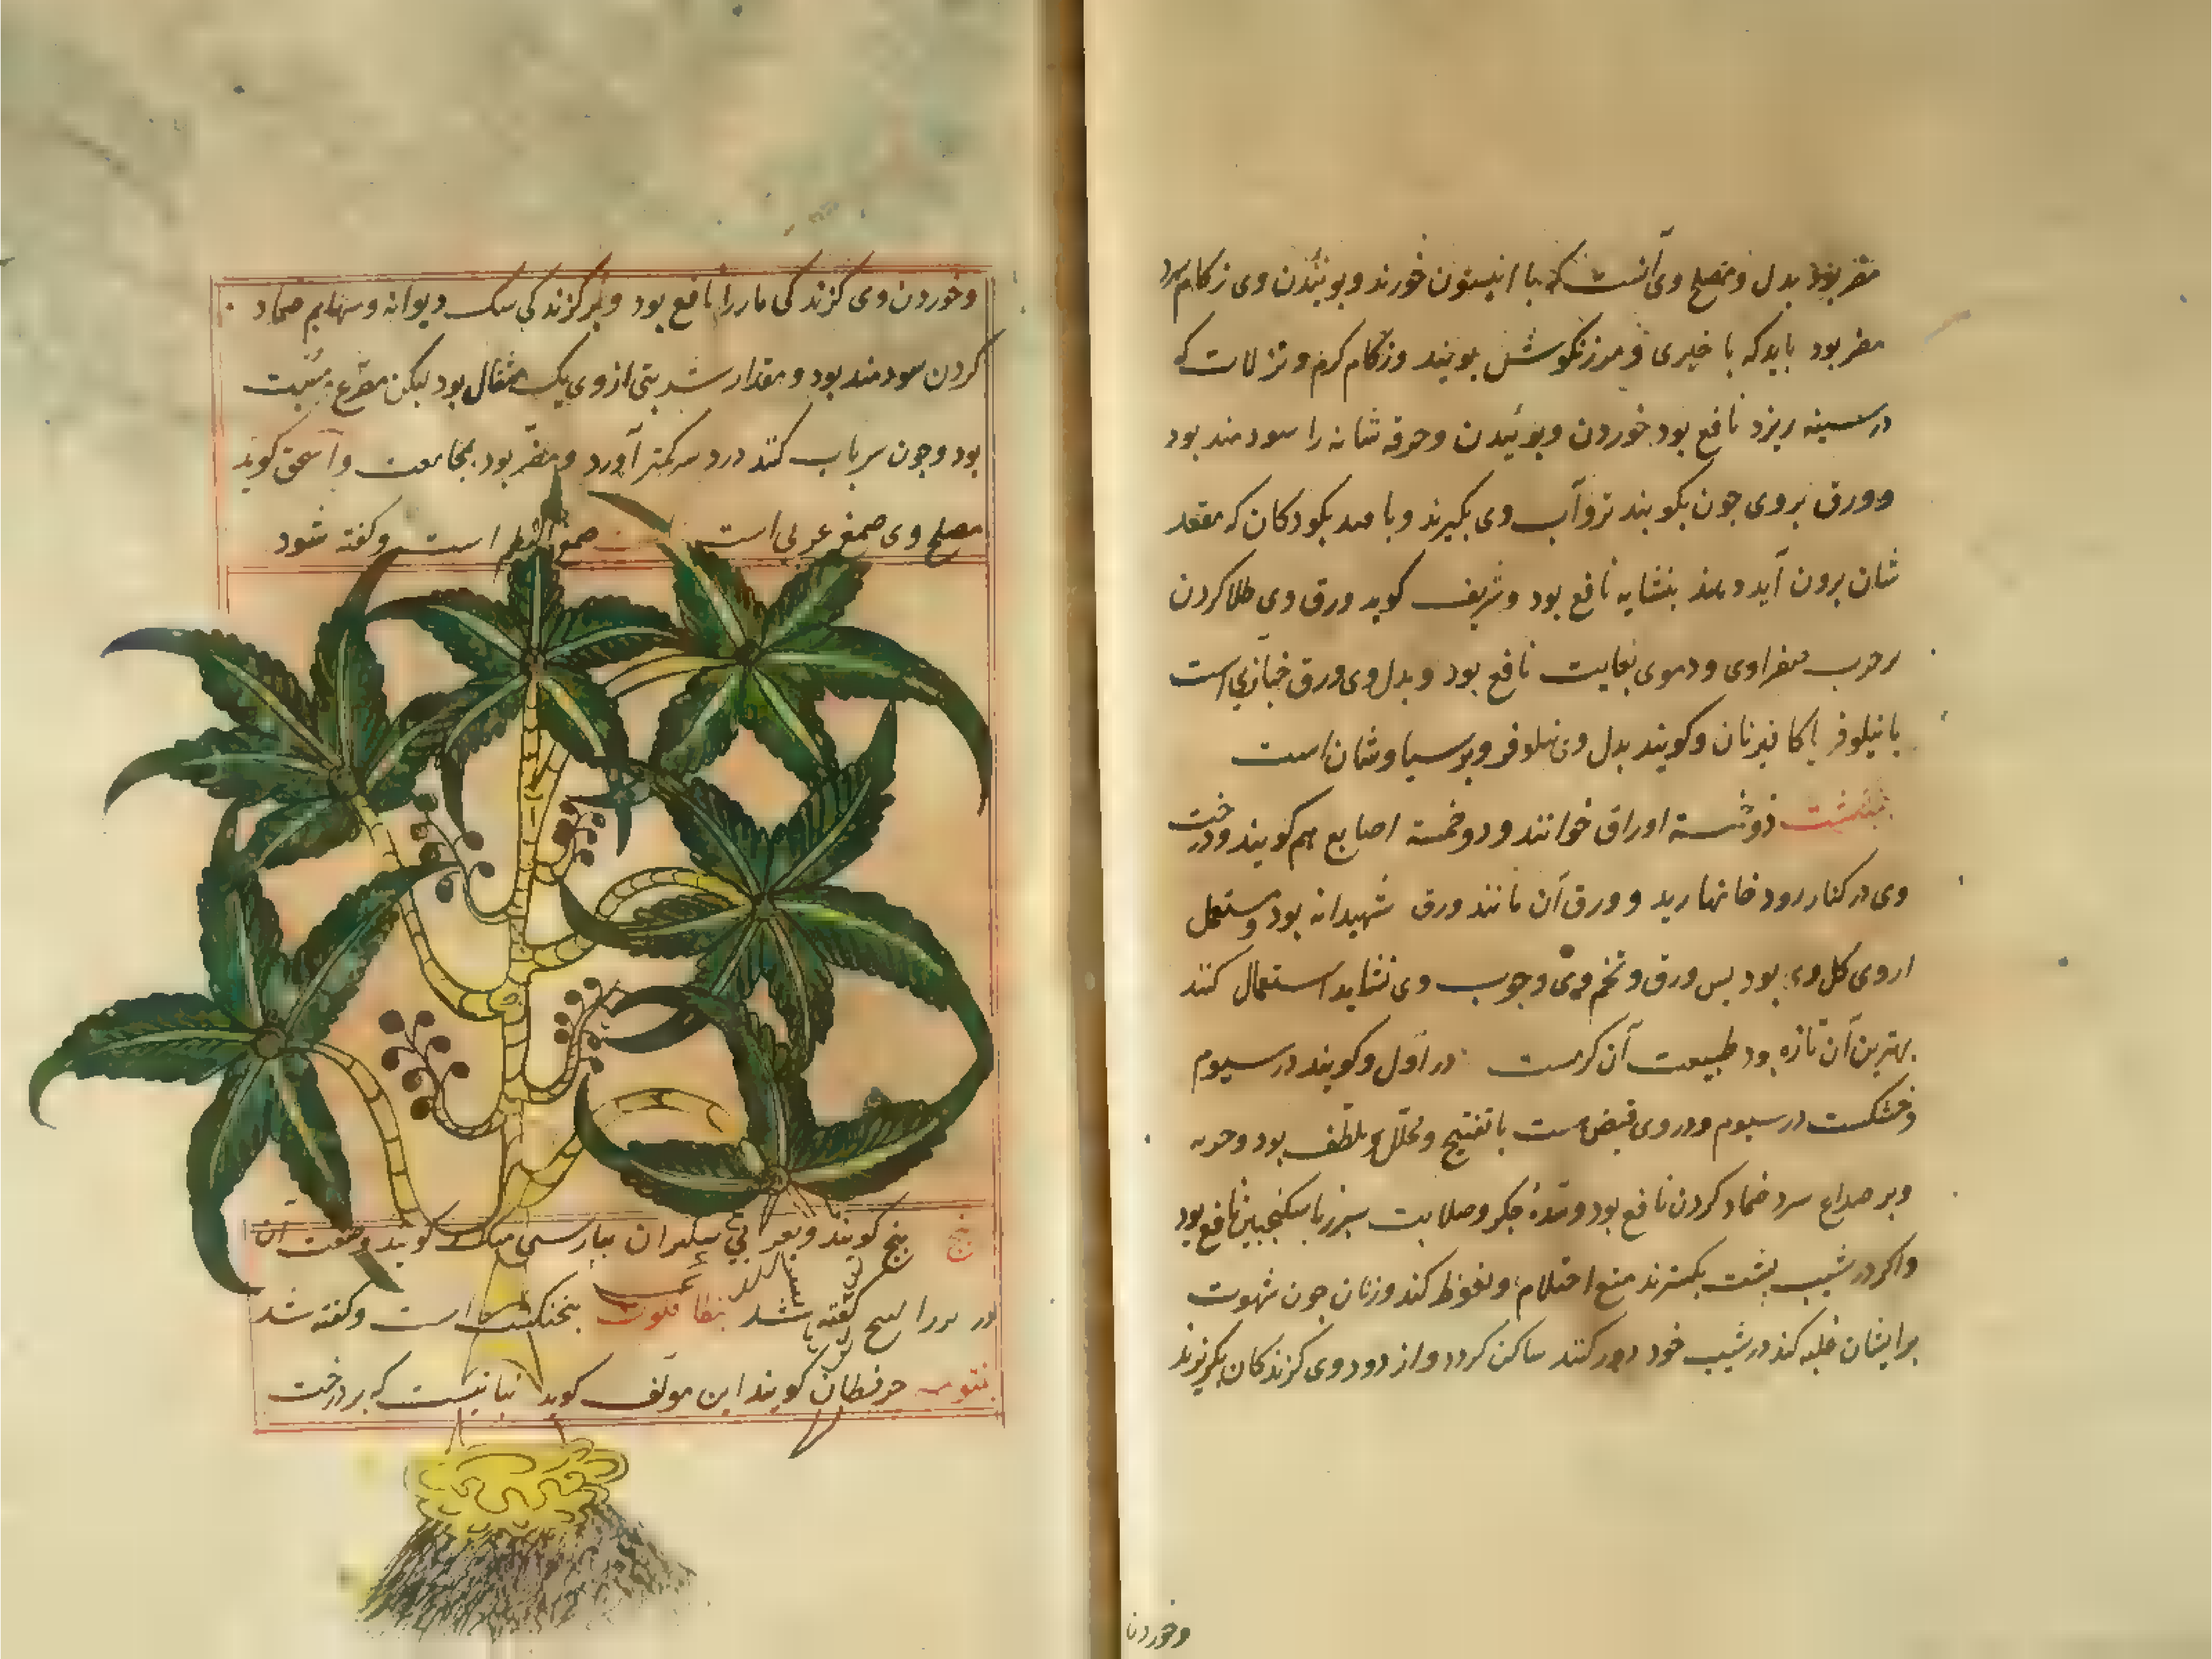 مضر بود بدل و مصلح وی آنست که با انیسون خورند و بوئیدن وی زکام سرد
مضر بود باید که با خیری و مرزنکوش بویند و زکام کرم و نزلات که
در سینه ریزد نافع بود خوردن و بوئیدن و حرقه مثانه را سودمند بود
و ورق بروی جون بکوبند تر و آب وی بکیرند و با قند بکودکان که مقعد
شان برون آید دهند بغایه نافع بود و شریف کوید ورق وی طلا کردن
بر جرب صفراوی و دموی بغایت نافع بود و بدل وی ورق خبازی است
با نیلوفر و کویند بدل وی نیلوفر و برسیاوشان است
بنجنکشت ذو خمسه اوراق خوانند و ذو خمسة اصابع هم کویند و درخت
وی در کنار رودخانها روید و ورق آن مانند ورق شهدانه بود و مستعمل
از وی کل وی بود بس ورق و تخم وی و جوب وی نشاید استعمال کنند
بهترین آن تازه بود طبیعت آن کرمست در اول و کویند در سیوم
و خشکست در سیوم و در وی قبض هست با تفتیح و محلل و ملطف بود
و بر صداع سرد ضماد کردن نافع بود و سده جکر و صلابت سبرز با سکنجبین نافع بود
و اکر در شیب بشت بکسترند منع احتلام و نغوظ کند و زنان جون شهوت
بر ایشان غلبه کند در شیب خود دود کنند ساکن کردد و از دود وی کزندکان بکریزند
و خوردن
و خوردن وی کزندکی مار را نافع بود و بر کزندکی سک دیوانه و سهایم ضماد
کردن سودمند بود و مقدار شربتی از وی یک مثقال بود لیکن مصدع و مسبت
بود و جون سر باب کنند درد سر کمتر آورد و مضر بود بمجامعت و اسحق کوید
مصلح وی صمغ عربی است صمغ البطم است و کفته شود
بنج بنج کویند و بعربی سیکران ببارسی بنک کویند و صفت آن
در بزر البنج کفته شد بنطافلون بنجنکشت است و کفته شد
بنتومه کویند این مولف کوید نباتیست که بر درخت